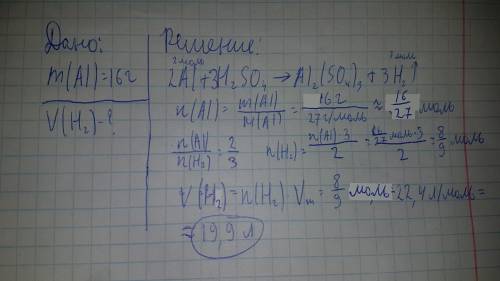 Дано:
m(Al)=16г
V(H₂)-?
Решение:
2моль 3моль
2Al+3H₂SO₄→Al₂(SO₄)₃+3H₂↑
n(Al)=m(Al)/M(Al)=16г/27г/моль≈16/27 моль
n(Al)/n(H₂)=2/3 n(H₂)=n(Al)·3/2=16/27 моль·3/2=8/9 моль
V(H₂)=n(H₂)·Vm=8/9 моль·22,4л/моль=
≈19,9л